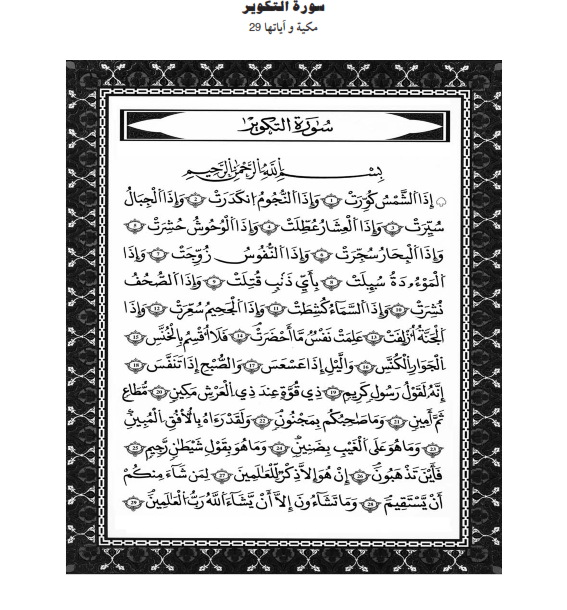 سورة التكوير
مكية و آياتها 29
سُورَةُ التَّكوِير
بِسْمِ اللَّهِ الرَّحْمَٰنِ الرَّحِيمِ
إِذَا الشَّمْسُ كُوِّرَتْ 1 وَإِذَا النُّجُومُ انكَدَرَتْ 2 وَإِذَا الْجِبَالُ
سُيِّرَتْ 3 وَإِذَا الْعِشَارُ عُطِّلَتْ 4 وَإِذَا الْوُحُوشُ حُشِرَتْ 5
وَإِذَا الْبِحَارُ سُجِّرَتْ 6 وَإِذَا النُّفُوسُ زُوِّجَتْ 7 وَإِذَا
الْمَوْءُودَةُ سُئِلَتْ 8 بِأَيِّ ذَنْبٍ قُتِلَتْ 9 وَإِذَا الصُّحُفُ
نُشِرَتْ 10 وَإِذَا السَّمَاءُ كُشِطَتْ 11 وَإِذَا الْجَحِيمُ سُعِّرَتْ 12 وَإِذَا
الْجَنَّةُ أُزْلِفَتْ 13 عَلِمَتْ نَفْسٌ مَّا أَحْضَرَتْ 14 فَلَا أُقْسِمُ بِالْخُنَّسِ 15
الْجَوَارِ الْكُنَّسِ 16 وَاللَّيْلِ إِذَا عَسْعَسَ 17 وَالصُّبْحِ إِذَا تَنَفَّسَ 18
إِنَّهُ لَقَوْلُ رَسُولٍ كَرِيمٍ 19 ذِي قُوَّةٍ عِندَ ذِي الْعَرْشِ مَكِينٍ 20 مُّطَاعٍ
ثَمَّ أَمِينٍ 21 وَمَا صَاحِبُكُم بِمَجْنُونٍ 22 وَلَقَدْ رَءَاهُ بِالْأُفُقِ الْمُبِينِ
23 وَمَا هُوَ عَلَى الْغَيْبِ بِضَنِينٍ 24 وَمَا هُوَ بِقَوْلِ شَيْطَانٍ رَّجِيمٍ 25
فَأَيْنَ تَذْهَبُونَ 26 إِنْ هُوَ إِلَّا ذِكْرٌ لِّلْعَالَمِينَ 27 لِمَن شَاءَ مِنكُمْ
أَنْ يَّسْتَقِيمَ 28 وَمَا تَشَاءُونَ إِلَّا أَنْ يَّشَاءَ اللَّهُ رَبُّ الْعَالَمِينَ 29